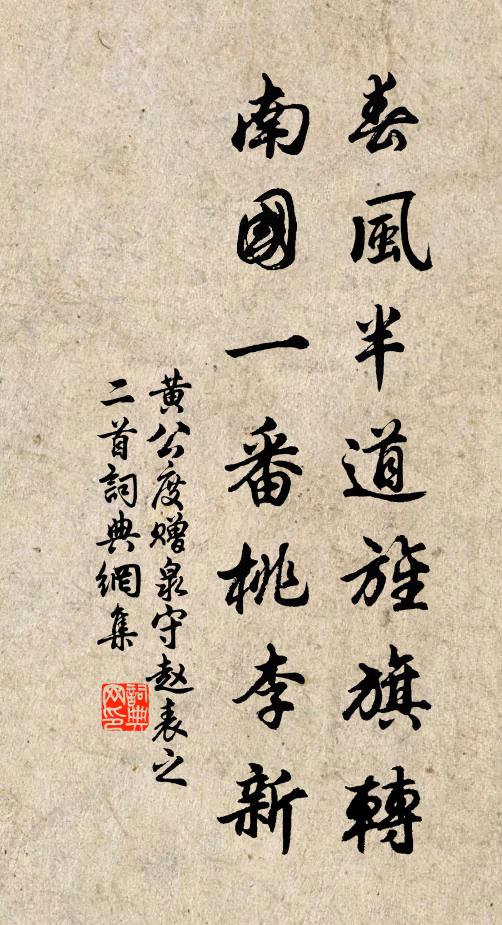 春風半道旌旗轉
南國一番桃李新
黄公度赠泉守赵表之
二首詞典網集
詞典
网印